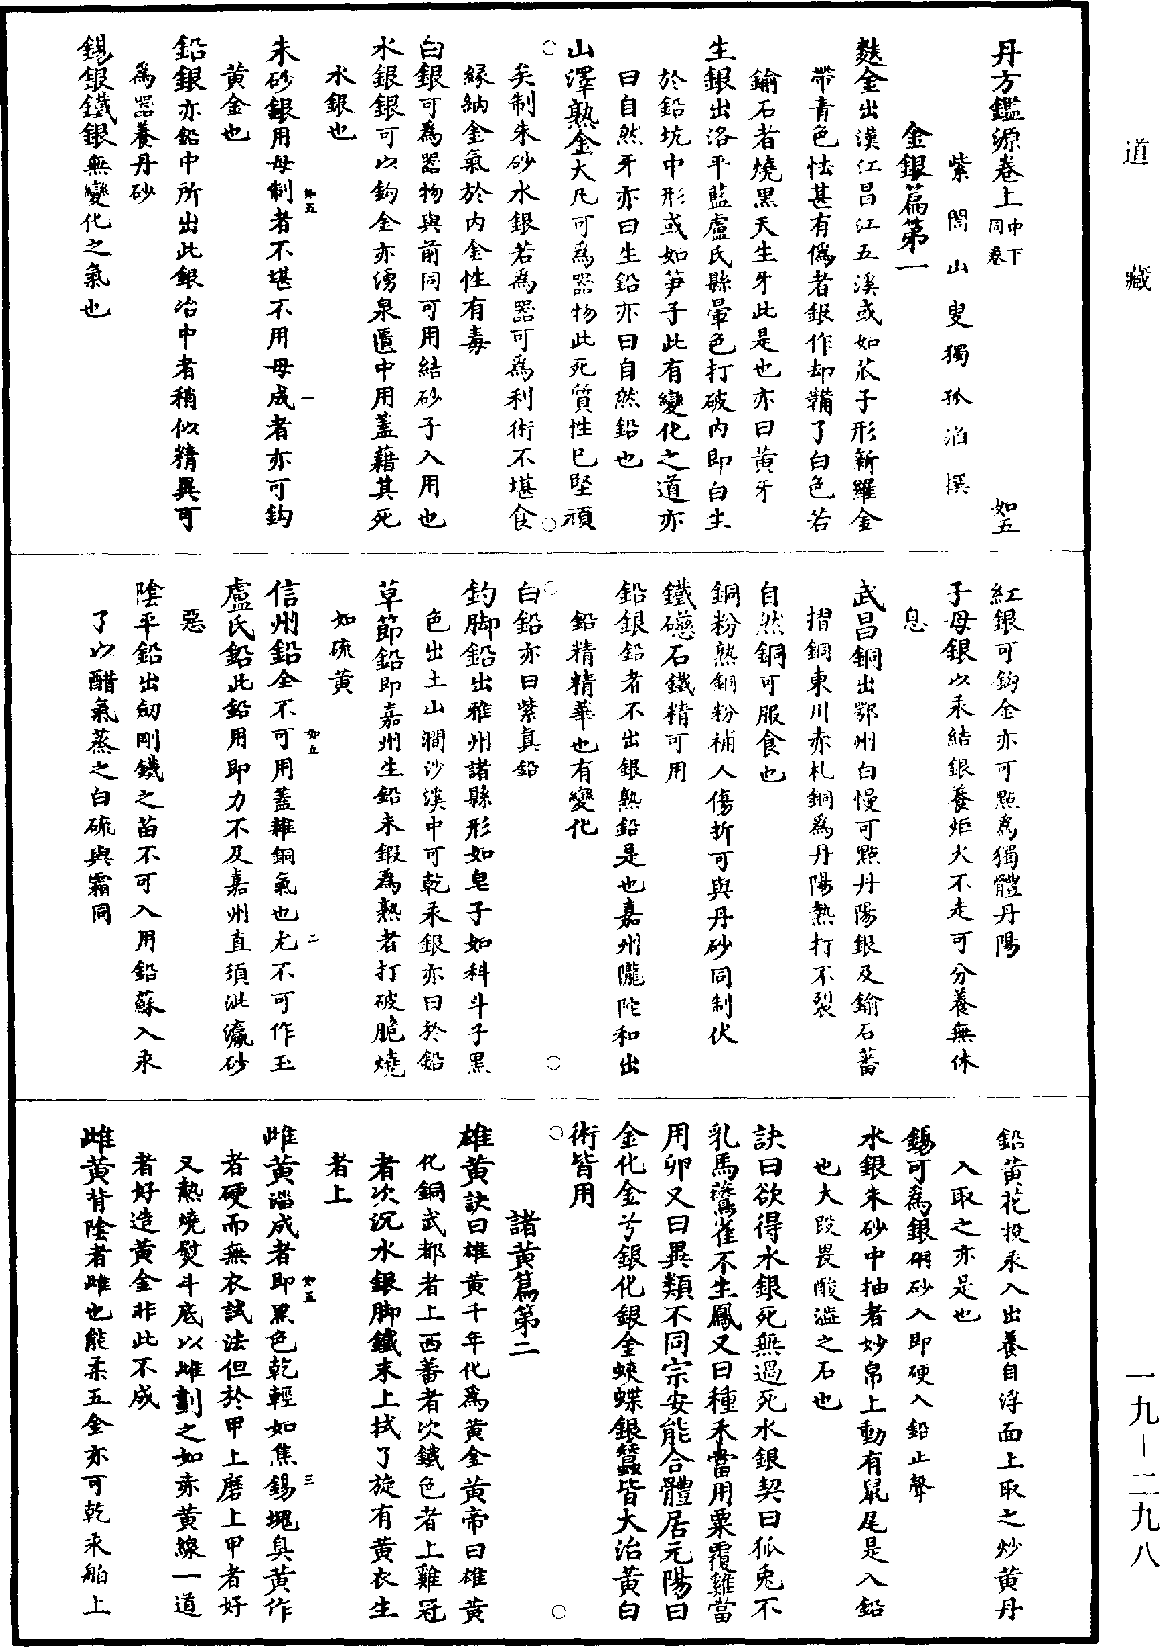 道藏
一九—二九八
丹方鑑源卷上中下同卷　如五
紫閣山叟獨孤滔撰
金銀篇第一
麩金出漢江昌江五溪或如苽子形新羅金
帶青色怯甚有僞者銀作却鞴了白色若
鍮石者燒黑天生牙此是也亦曰黃牙
生銀出洛平藍盧氏縣暈色打破內即白生
於鉛坑中形或如笋子此有變化之道亦
曰自然牙亦曰生鉛亦曰自然鉛也
山澤熟金大凡可爲器物此死質性已堅頑
矣制朱砂水銀若爲器可爲利術不堪食
緣納金氣於內金性有毒
白銀可爲器物與前同可用結砂子入用也
水銀銀可以鈎金亦湧泉匱中用蓋藉其死
水銀也
朱砂銀用母制者不堪不用母成者亦可鈎
黃金也
鉛銀亦鉛中所出此銀冶中者稍似精異可
爲器養丹砂
錫銀鐵銀無變化之氣也
如五　一
紅銀可鈎金亦可點爲獨體丹陽
子母銀以汞結銀養炬火不走可分養無休
息
武昌銅出鄂州白慢可點丹陽銀及鍮石蕃
摺銅東川赤札銅爲丹陽熱打不裂
自然銅可服食也
銅粉熟銅粉補人傷折可與丹砂同制伏
鐵礠石鐵精可用
鉛銀鉛者不出銀熟鉛是也嘉州隴陀和出
鉛精精華也有變化
白鉛亦曰紫真鉛
釣脚鉛出雅州諸縣形如皂子如科斗子黑
色出土山澗沙溪中可乾汞銀亦曰於鉛
草節鉛即嘉州生鉛未鍛爲熟者打破脆燒
如硫黃
信州鉛全不可用蓋雜銅氣也尤不可作玉
盧氏鉛此鉛用即力不及嘉州直須泚瀛砂
惡
陰平鉛出劒剛鐵之苗不可入用鉛蘇入汞
了以醋氣蒸之白硫與霜同
如五　二
鉛黃花投汞入出養自浮面上取之炒黃丹
入取之亦是也
錫可爲銀硇砂入即硬入鉛止聲
水銀朱砂中抽者妙帛上動有鼠尾是入鉛
也大段畏酸澁之石也
訣曰欲得水銀死無過死水銀契曰狐兎不
乳馬鷰雀不生鳳又曰種禾當用粟覆雞當
用卯又曰異類不同宗安能合體居元陽曰
金化金兮銀化銀金蛺蝶銀蠶皆大治黃白
術皆用
諸黃篇第二
雄黃訣曰雄黃千年化爲黃金黃帝曰雄黃
化銅武都者上西蕃者次鐵色者上雞冠
者次沉水銀脚鐵末上拭了旋有黃衣生
者上
雌黃淄成者即黑色乾輕如焦錫塊臭黃作
者硬而無衣試法但於甲上磨上甲者好
又熱燒熨斗底以雌劃之如赤黃線一道
者好造黃金非此不成
雌黃背陰者雌也能柔五金亦可乾汞舶上
如五　三